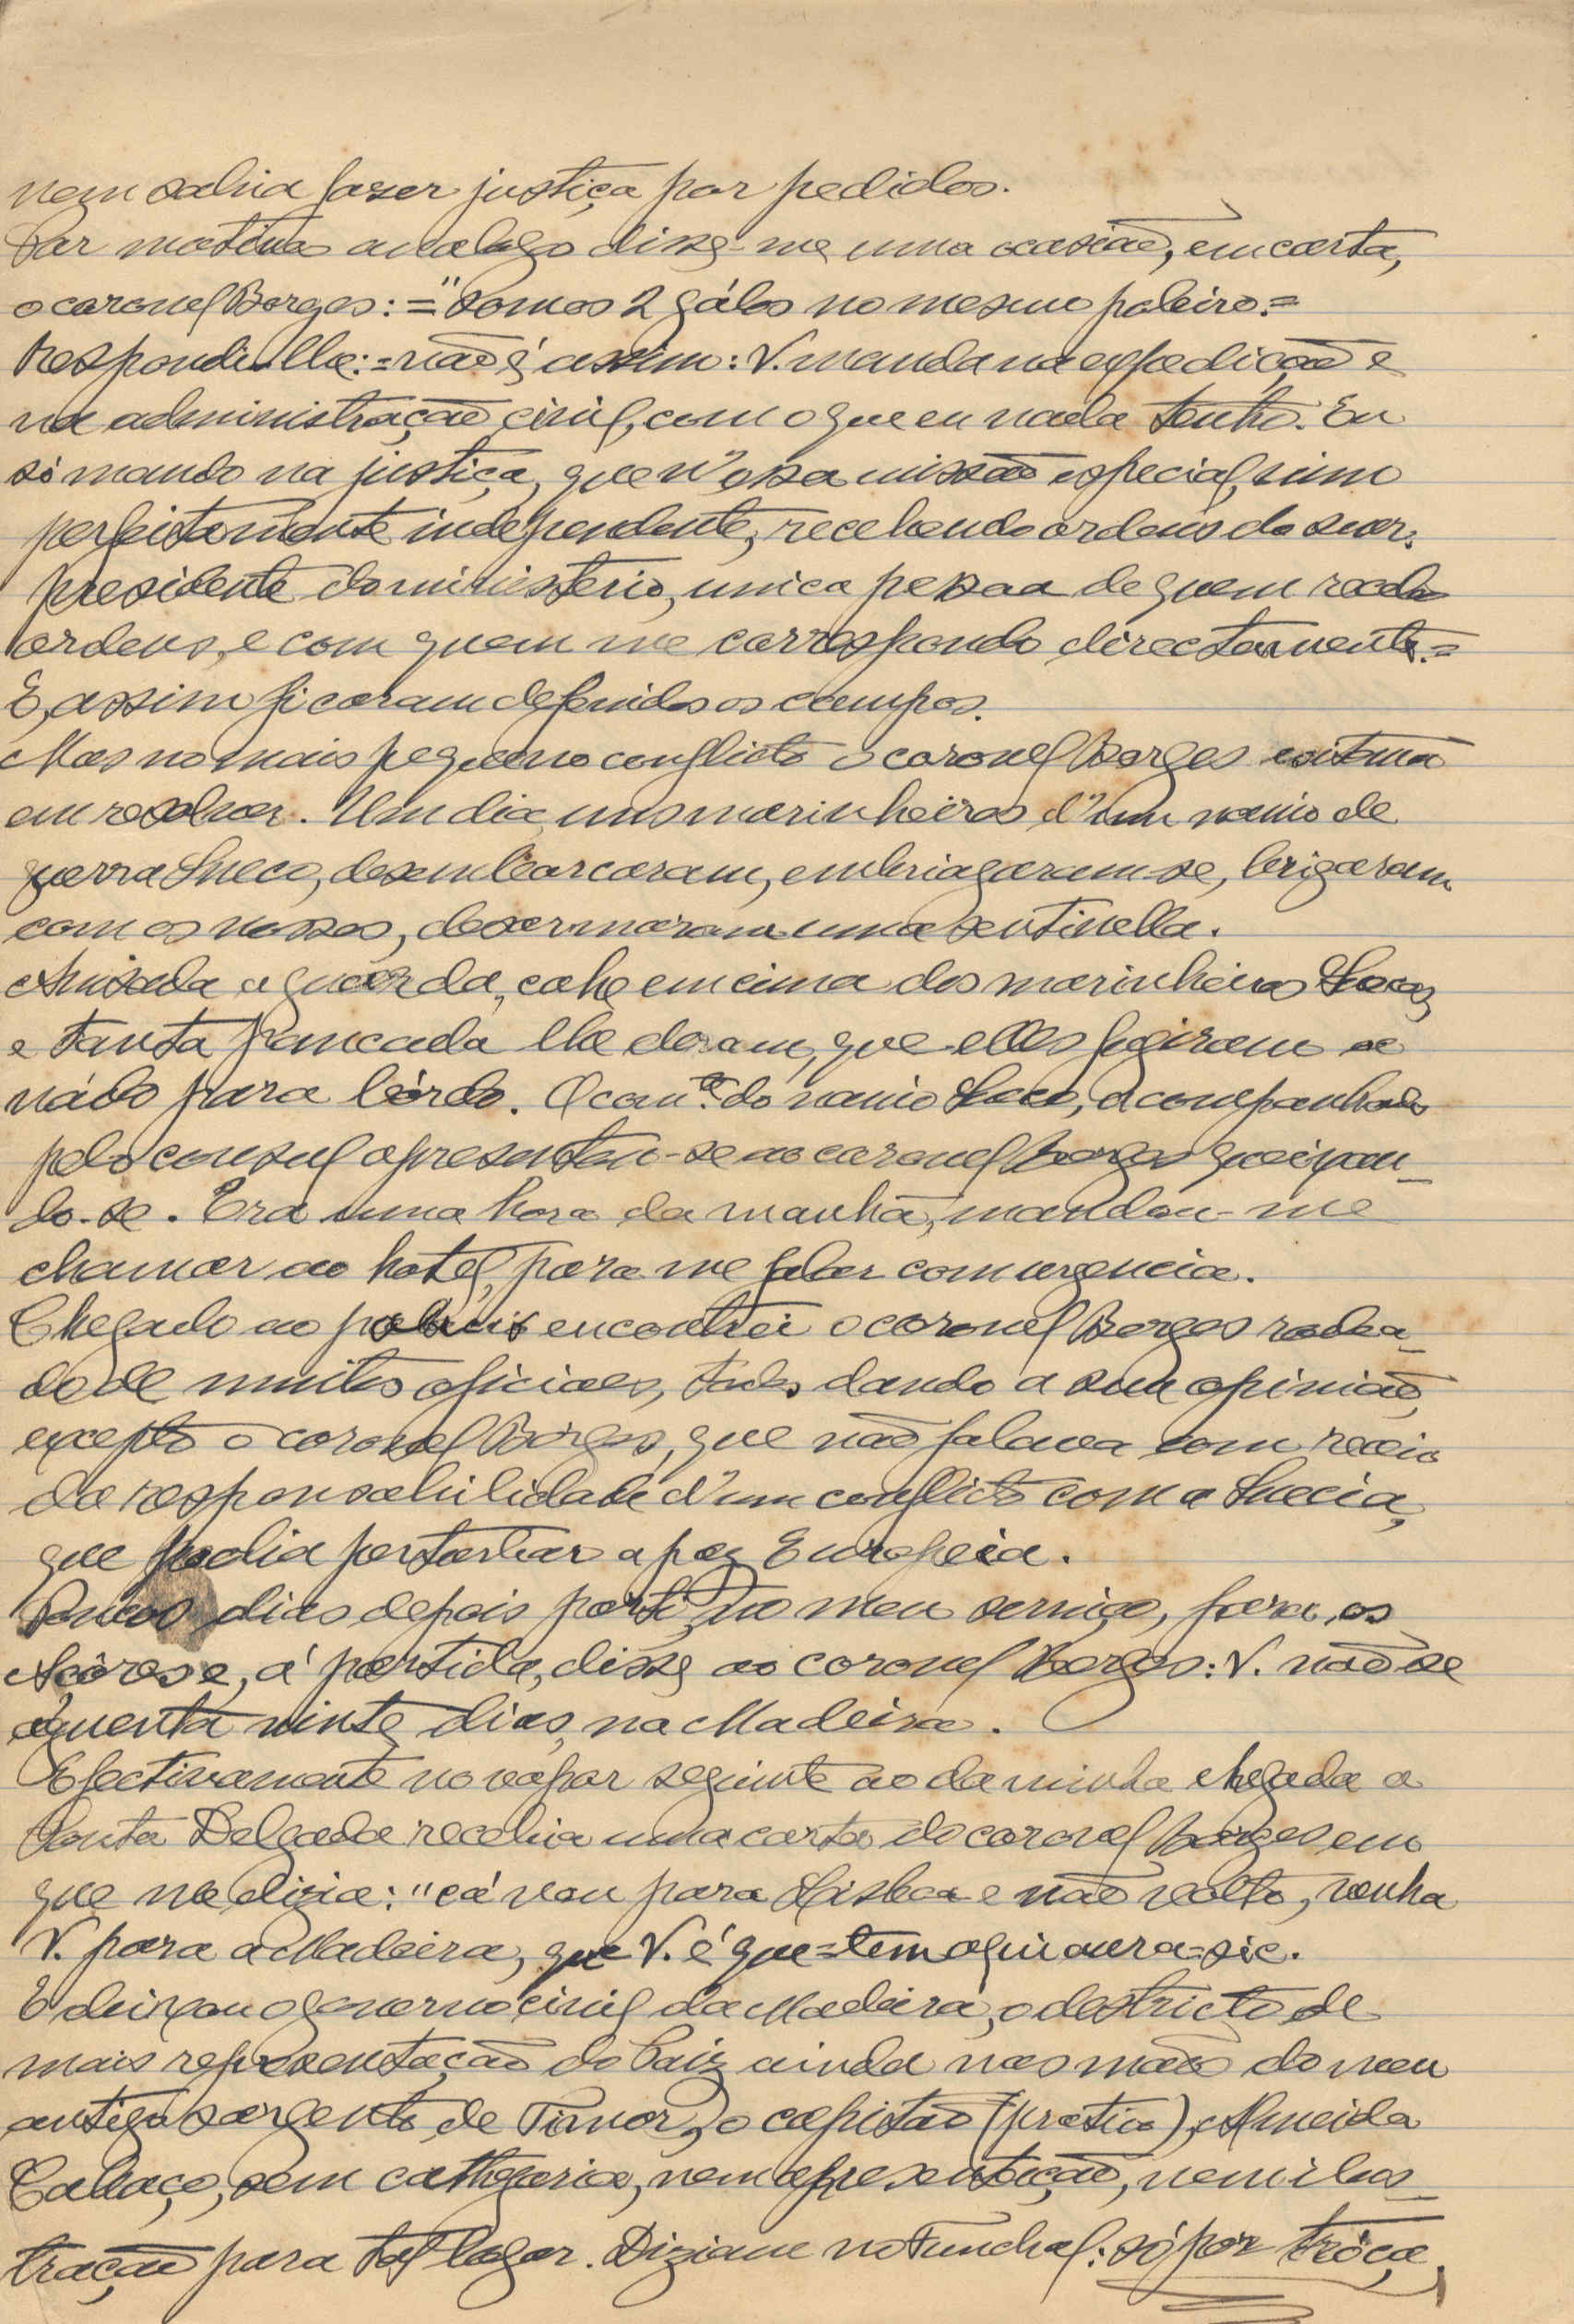 nem sabia faser justiça por pedidos.
Por motivo analogo disse-me uma ocasião, em carta,
o coronel Borges: = "Somos 2 gálos no mesmo poleiro. =
Respondi-lhe: = não é assim: V. manda na expedição e
na administração civil, com o que eu nada tenho. Eu
só mando na justiça, que n'essa missão especial, sum
perfeitamente independente, recebendo ordens do snor.
presidente do ministerio, unica pessoa de quem recebo
ordens, e com quem me correspondo directamente. =
E, assim ficaram definidos os campos.
Mas no mais pequeno conflicto o coronel Borges esitava
em resolver. Um dia, uns marinheiros d'um navio de
guerra Sueco, desembarcaram, embriagaram-se, brigaram
com os nossos, desarmaram uma sentinella.
Avisada a guarda, cahe em cima dos marinheiros Suecos
e tanta pancada lhe deram, que elles fugiram a
nádo para bórdo. O com.e do navio Sueco, acompanhado
pelo consul apresentou-se ao coronel Borges queixan-
do-se. Era uma hora da manhã, mandou-me
chamar ao hotel, para me falar com urgencia.
Chegado ao palacio encontrei o coronel Borges rodea-
do de muitos oficiaes, todos dando a sua opinião,
excepto o coronel Borges, que não falava com receio
da responsabilidade d'um conflicto com a Suecia,
que podia pertubar a paz Europeia.
Poucos dias depois parti, no meu serviço, para os
Açôres e, á partida, disse ao coronel Borges: V. não se
aguenta vinte dias, na Madeira.
Efectivamente no vapor seguinte ao da minha chegada a
Ponta Delgada recebia uma carta do coronel Borges em
que me dizia: "cá vou para Lisboa e não volto, venha
V. para a Madeira, que V. é que = tem aqui aura = sic.
E deixou o governo civil da Madeira, o destricto de
mais representação do Paiz ainda nas mãos do meu
antigo sargento de Timor, o capitão (pratico), Almeida
Cabaço, sem cathegoria, nem apresentação, nem ilus-
tração para tal logar. Diziam no Funchal: só por tróça,